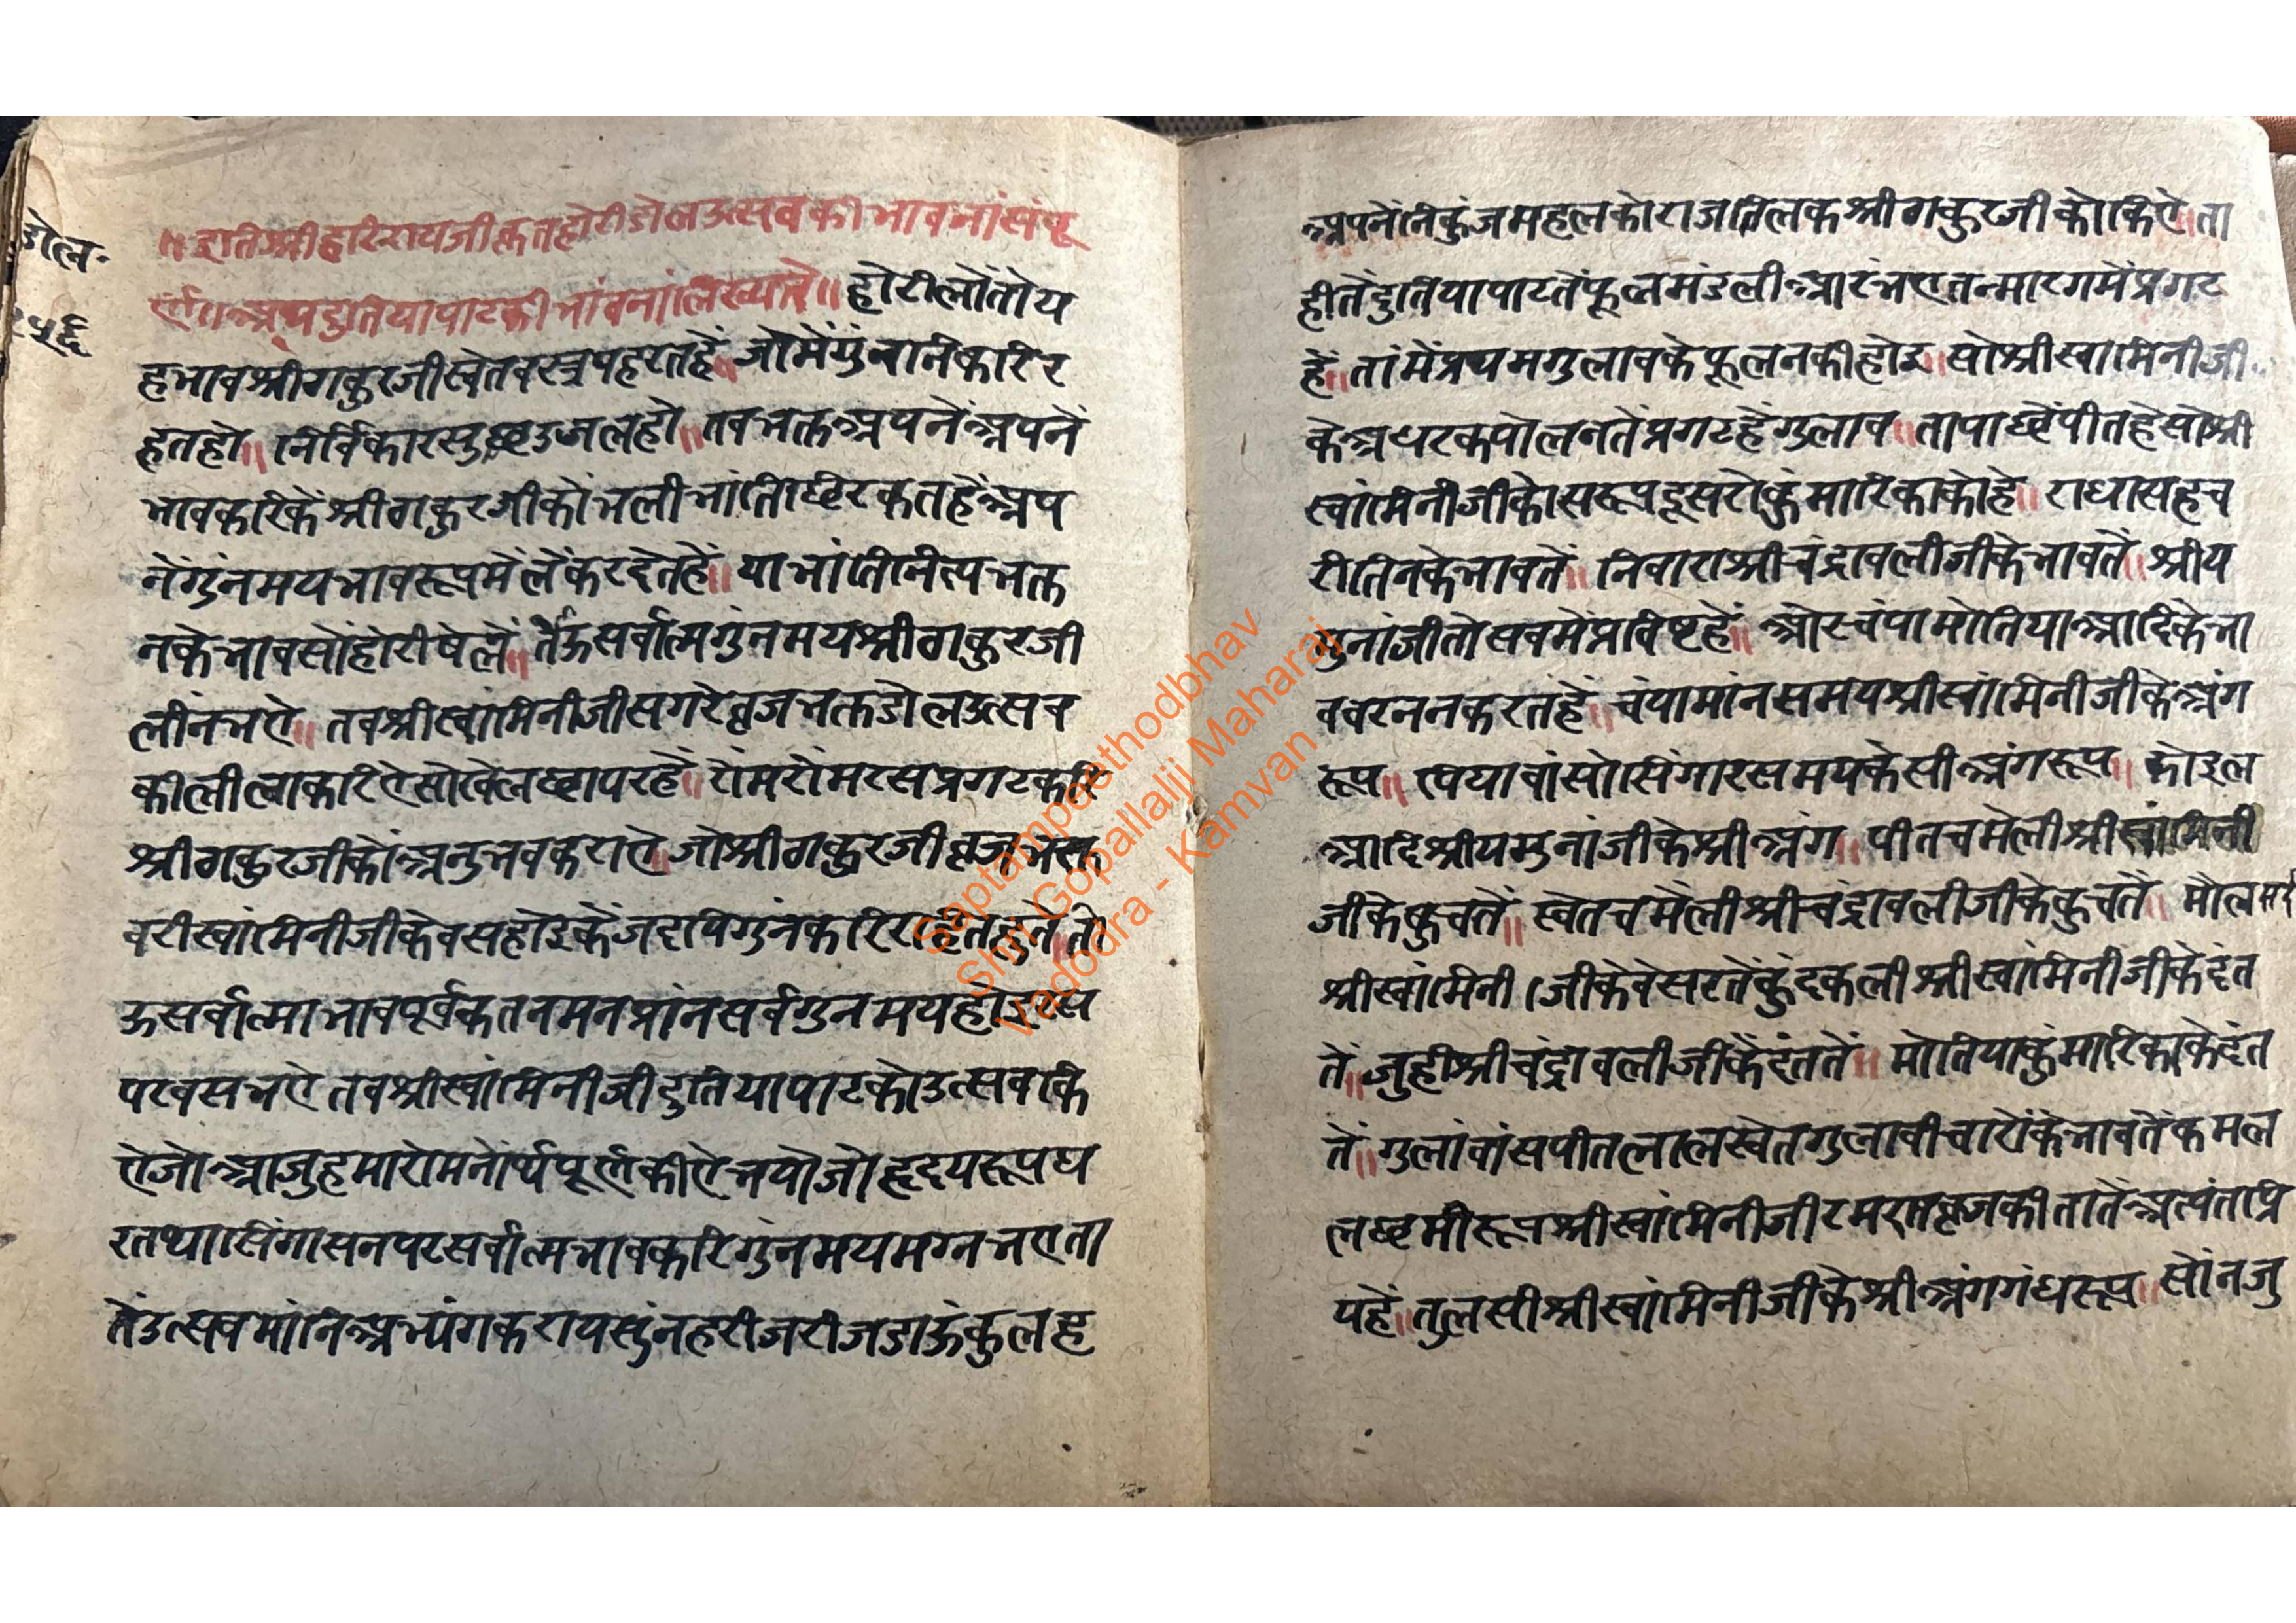 डोल॰
२५६
॥इतिश्रीहरिरायजीकृतहोरीडोलउत्सवकीभावनांसंपू
र्ण॥अथदुतियापाटकीभांवनांलिख्यते॥होरीलोंतोय
हभावश्रीठाकुरजीस्वेतवस्त्रपहरतहें॥जोमेंगुंनातितकरिर
हतहो॥निर्विकारसुछउजलहो॥तवभक्तअपनेंअपनें
भावकरिकेंश्रीठाकुरजीकोंभलीभांतिछिरकतहेंअप
नेंगुंनमयभावरूपमेंलेंकरदेतहें॥याभांतिनित्यभक्त
नकेभावसोंहोरीषेलें॥तेंऊसर्वात्मगुंनमयश्रीठाकुरजी
लींनभऐ॥तवश्रीस्वांमिनीजीसगरेव्रजभक्तडोलउत्सव
कीलीलाकरिऐसोकेलछापरहें॥रोंमरोंमरसप्रगटकरि
श्रीठाकुरजीकोंअनुभवकराऐ॥जोश्रीठाकुरजीव्रजभक्त
वरीस्वांमिनीजीकेवसहोइकेंजद्यपिगुंनकरिरहितहुते॥तो
ऊसर्वात्माभावपूर्वकतनमनप्रांनसर्वगुनमयहोइरस
परवसभऐतवश्रीस्वांमिनीजीदुतियापाटकोउत्सवकि
ऐजोआजुहमारोमनोर्थपूर्णकीऐभयोजोहृदयरूपघ
रतथासिंगासनपरसर्वात्मभावकरिगुंनमयमग्नभएता
तेंउत्सवमांनिअभ्यंगकरायसुंनहरीजरीजडाऊकुलह
अपनेंनिकुंजमहलकोराजतिलकश्रीठाकुरजीकोकिऐ॥ता
हीतेंदुतियापाटतेंफूलमंडलीआरंभएतन्मारगमेंप्रगट
हें॥तांमेंप्रथमगुलावकेफूलनकीहोइ॥सोश्रीस्वामिनीजी
केअधरकपोलनतेंप्रगटहेंगुलाव॥तापाछेंपीतहेसोश्री
स्वांमिनीजीकोसरूपदूसरोकुंमारिकाकोहे॥राधासहच
रीतिनकेभावतें॥निवाराश्रीचंद्रावलीजीकेभावतें॥श्रीय
मुनांजीतोसवमेंप्राविष्टहें॥ओरचंपामोतियाआदिकेभा
ववरननकरतहें॥चंपामांनसमयश्रीस्वांमिनीजीकेअंग
रूप॥पियावांसोसिंगारसमयकेसीअंगरूप॥कोइल
आदिश्रीयमुनांजीकेश्रीअंग॥पीतचमेलीश्रीस्वांमिनी
जीकेकुचतें॥स्वेतचमेलीश्रीचंद्रावलीजीकेकुचतें॥मोलसरी
श्रीस्वांमिनी।जीकेवेसरतेंकुंदकलीश्रीस्वांमिनीजीकेदंत
तें॥जुहीश्रीचंद्रावलीजीकेंदंततें॥मोतियाकुंमारिकाकेदंत
तें॥गुलांवांसपीतलालस्वेतगुलावीचारोंकेभावतेंकमल
लछमीरूपश्रीस्वांमिनीजीरमरातव्रजकीतातेंअत्यंतप्रि
यहें॥तुलसीश्रीस्वांमिनीजीकेश्रीअंगगंधरूप॥सोंनजु
Saptampeethodbhav
Shri Gopallalji Maharaj
Vadodra - Kamvan